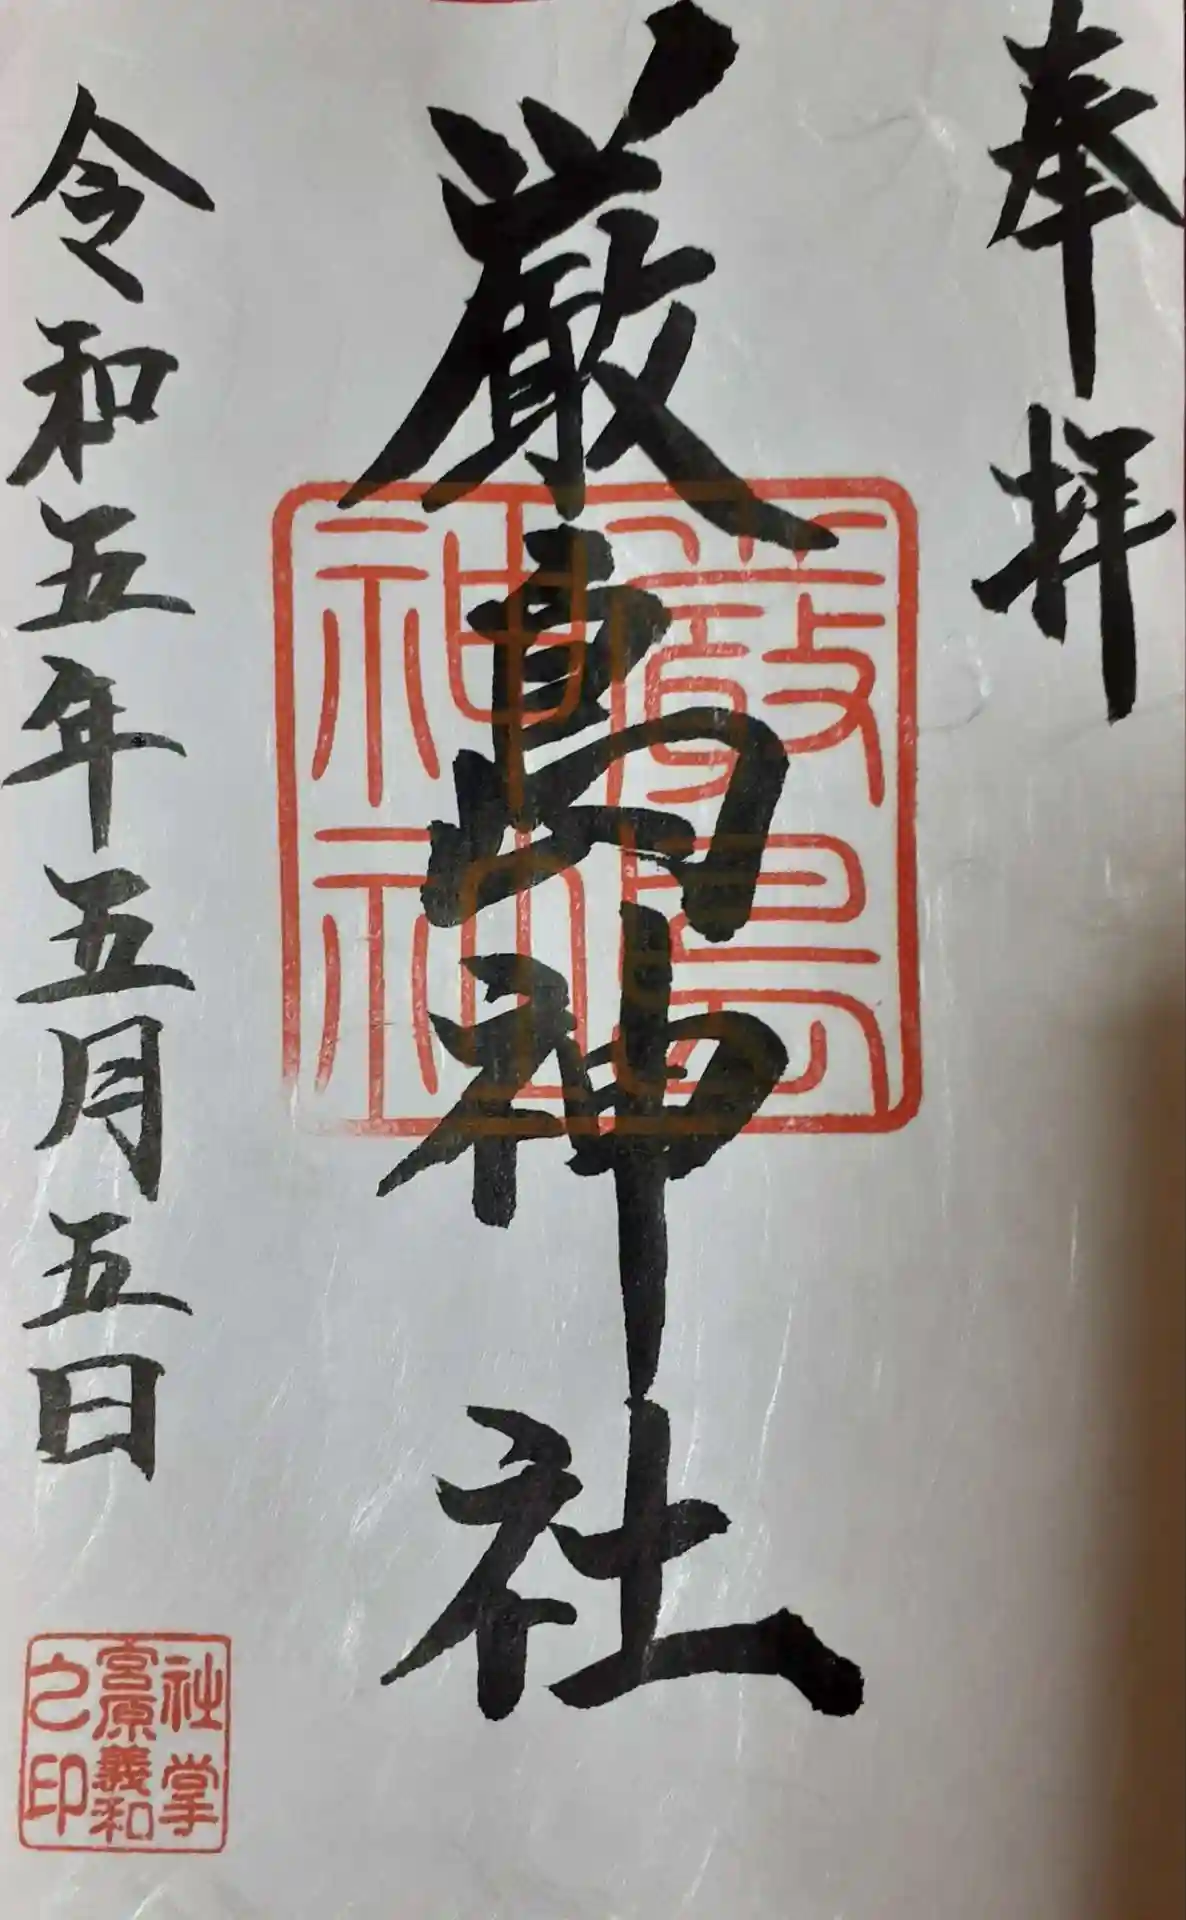 奉拝
厳島神社
厳島
神社
令和五年五月五日
社掌
宮原義和
之印